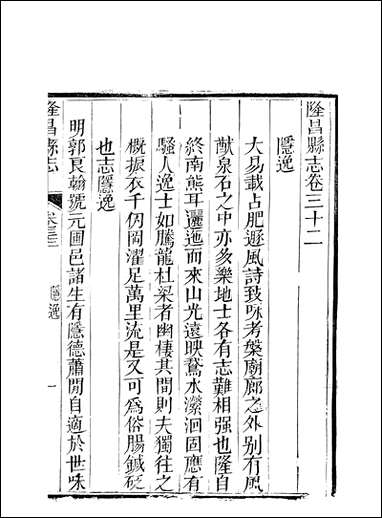 隆昌縣志卷三十二
隱逸
大易載占肥遯風詩致咏考槃廟廊之外别有風
猷泉石之中亦多樂地士各有志難相强也隆自
終南熊耳邐迤而來山光遠映鵞水瀠洄固應有
騷人逸士如騰龍杜梁者幽棲其間則夫獨往之
概振衣千仞岡濯足萬里流是又可爲俗腸鍼砭
也志隱逸
明郭良翰號元圃邑諸生有隱德蕭閒自適於世味
隆昌縣志
卷三十二
隱逸
一